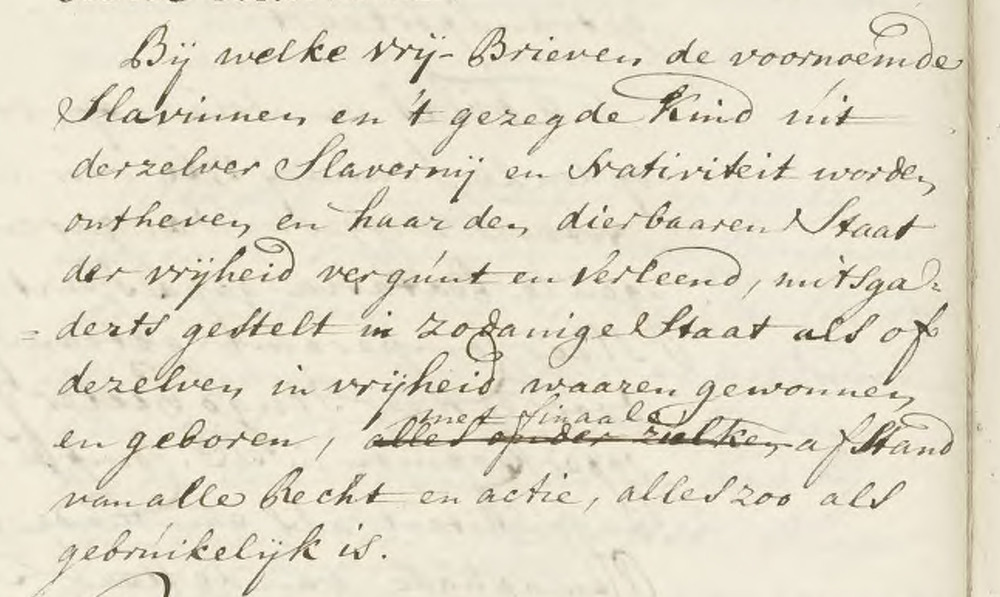 Bij welke vrij-Brieven de voornoemde
Slavinnen en 't gezegde Kind uit
derzelver Slavernij en Nativiteit worden
ontheven en haar den dierbaaren Staat
der vrijheid vergunt en verleend, mitsga=
=derts gestelt in zodanige Staat als of
dezelven in vrijheid waaren gewonnen
met finaale
en geboren, alles onder zulken afstand
van alle Recht en actie, alles zoo als
gebruikelijk is.